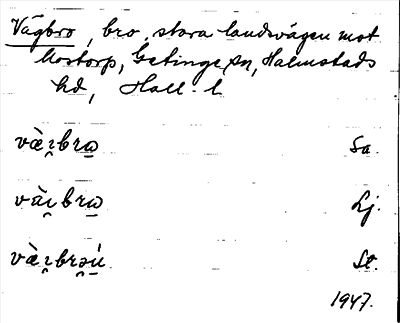 Vägbro, bro, stora landsvägen mot
Mostorp, Getinge sn, Halmstads
hd, Hall. l.
væ̀i̯brω̲ Sa.
vài̯brω̲ Lj.
væ̀i̯brə̯ú̲ St.
1947.